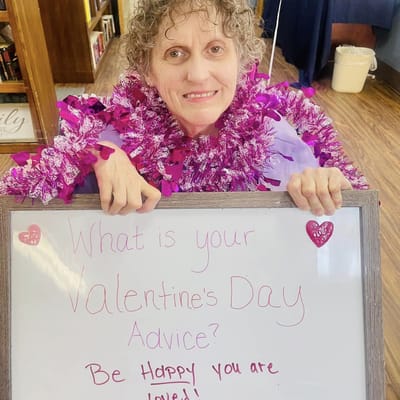 What is your
Valentine's Day
Advice?
Be Happy you are
loved!